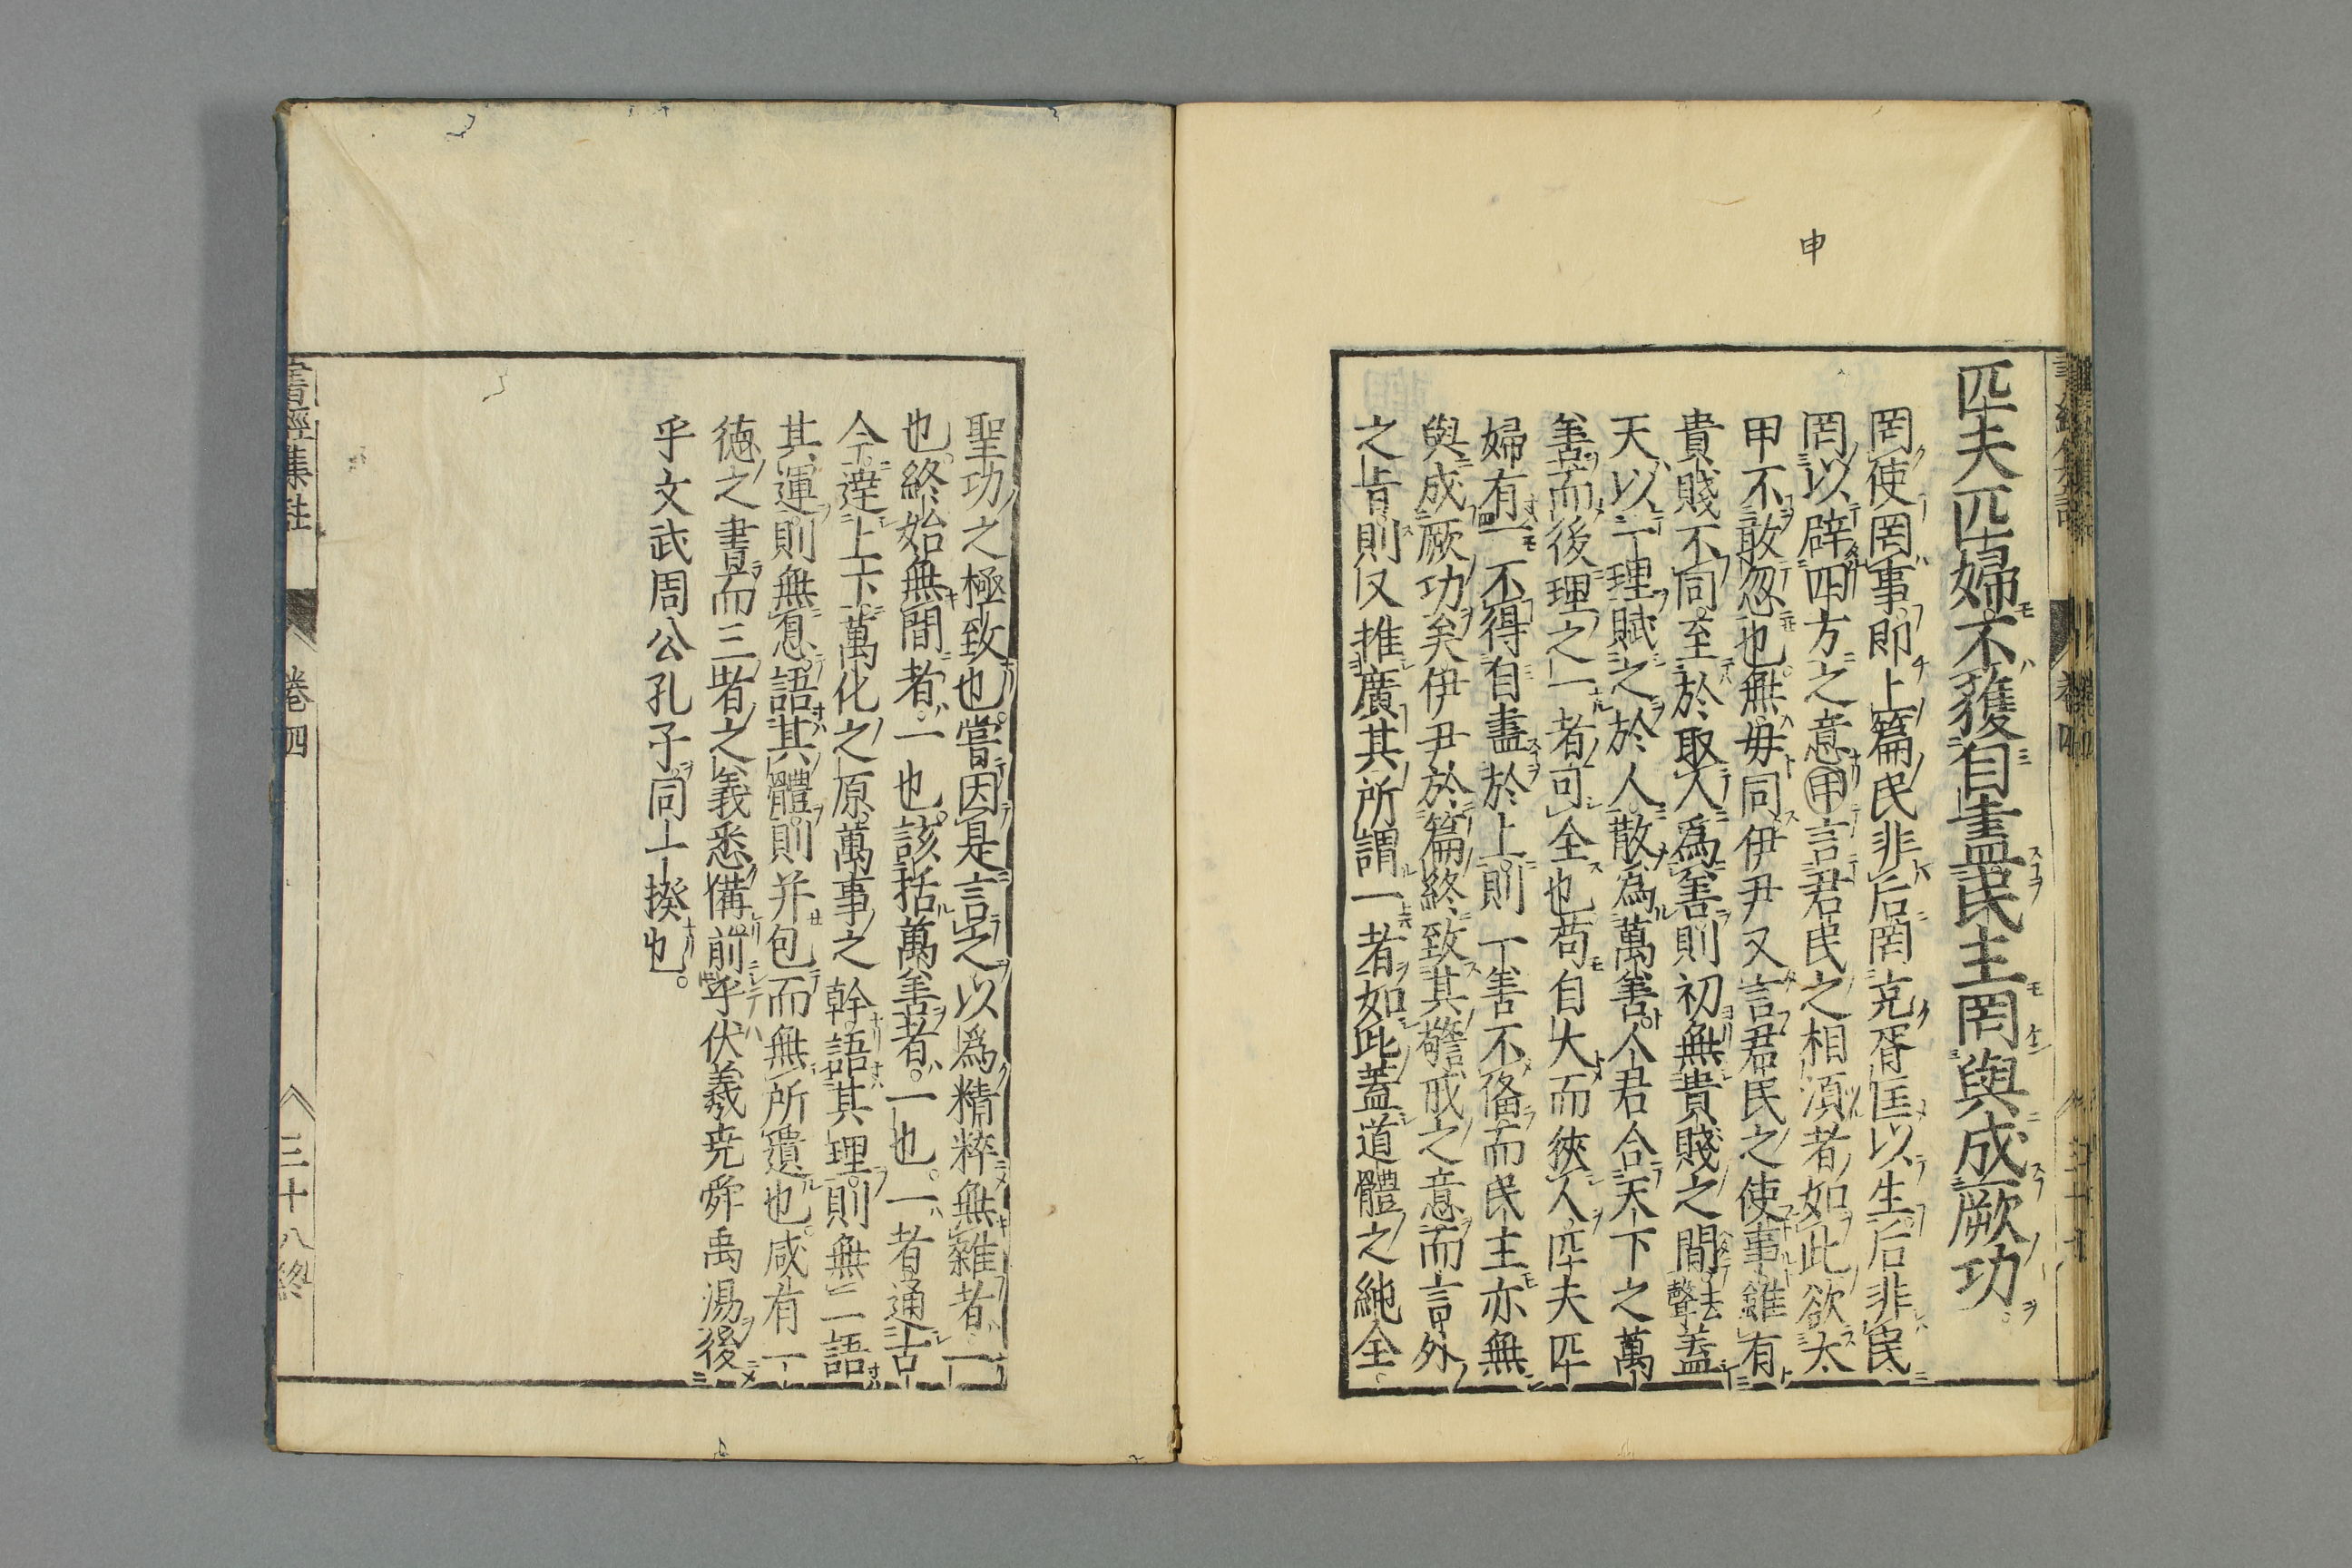 申
匹夫匹婦不獲自盡民主罔與成厥功
罔使罔事即上篇民非后罔克胥匡以生后非民
罔以辟四方之意㊥言君民之相須者如此欲太
甲不敢忽也無毋同伊尹又言君民之使事雖有
貴賤不同至於取人爲善則初無貴賤之間去聲蓋
天以一理賦之於人散爲萬善人君合天下之萬
善而後理之一者可全也苟自大而狹人匹夫匹
婦有一不得自盡於上則一善不備而民主亦無
與成厥功矣伊尹於篇終致其警戒之意而言外
之旨則又推廣其所謂一者如此蓋道體之純全
聖功之極致也嘗因是言之以爲精粹無雜者一
也終始無間者一也該括萬善者一也一者通古
今達上下萬化之原萬事之幹語其理則無二語
其運則無息語其體則并包而無所遺也咸有一
德之書而三者之義悉備前乎伏羲堯舜禹湯後
乎文武周公孔子同一揆也
書經集註 卷四 三十八終